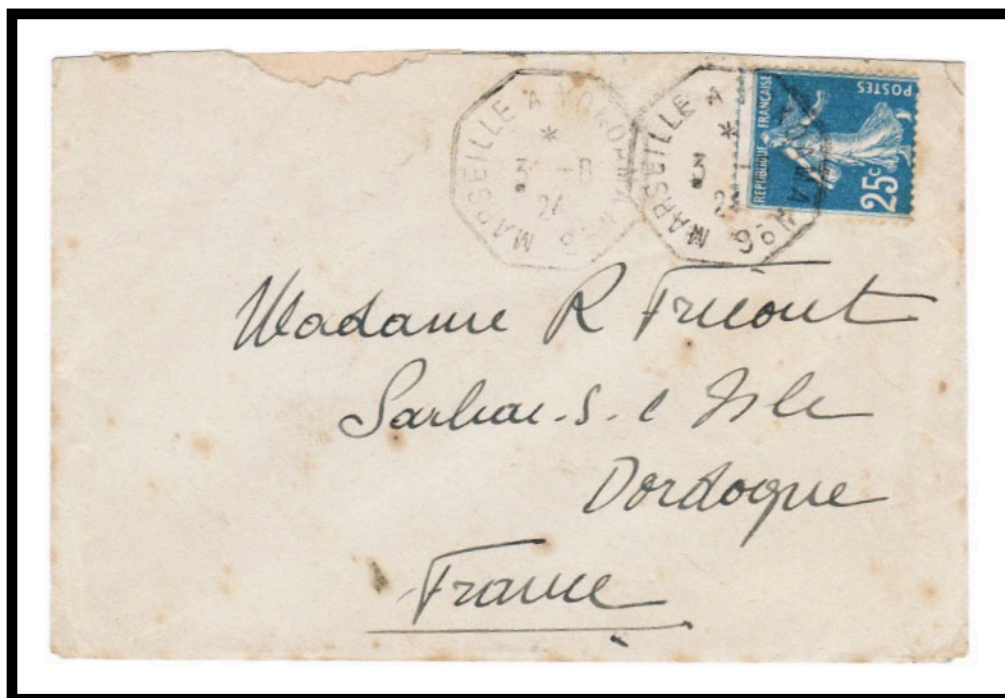 MARSEILLE A YOKOHAMA Nº 6
*
3 -D
24
MARSEILLE A YOKOHAMA Nº 6
*
3
2
REPUBLIQUE FRANÇAISE
POSTES
25c
Madame R Fricout
Sarliac-s-l Isle
Dordogne
France